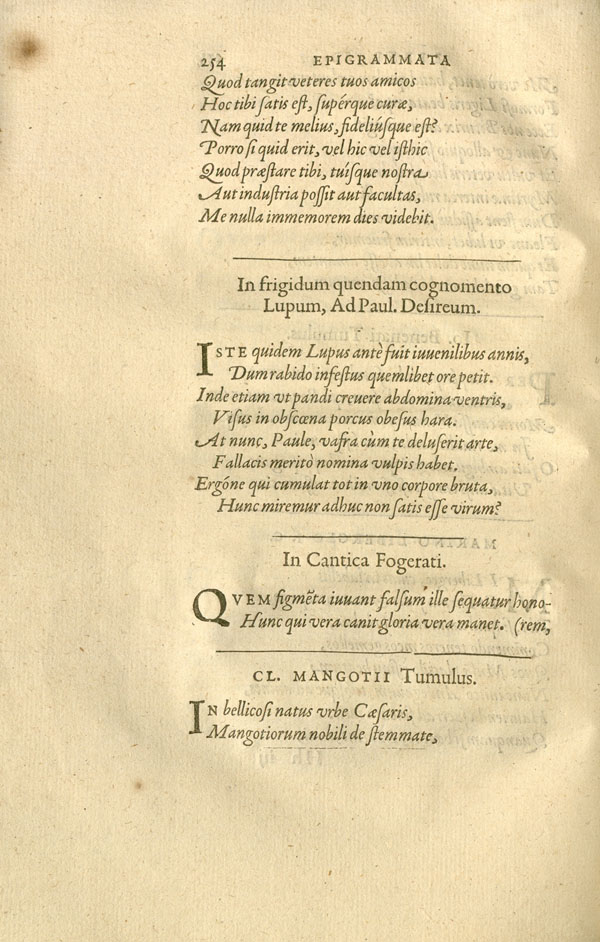 254 EPIGRAMMATA
Quod tangit veteres tuos amicos
Hoc tibi ſatis eſt, ſupérque curæ,
Nam quid te melius, fideliúſque eſt?
Porro ſi quid erit, vel hic vel iſthic
Quod præſtare tibi, tuíſque noſtra
Aut induſtria poſſit aut facultas,
Me nulla immemorem dies videbit.
In frigidum quendam cognomento
Lupum, Ad Paul. Deſireum.
ISTE quidem Lupus antè fuit iuuenilibus annis,
Dum rabido infeſtus quemlibet ore petit.
Inde etiam vt pandi creuere abdomina ventris,
Viſus in obſcœna porcus obeſus hara.
At nunc, Paule, vafra cùm te deluſerit arte,
Fallacis meritò nomina vulpis habet.
Ergóne qui cumulat tot in vno corpore bruta,
Hunc miremur adhuc non ſatis eſſe virum?
In Cantica Fogerati.
QVEM figmēta iuuant falſum ille ſequatur hono-
Hunc qui vera canit gloria vera manet. (rem,
CL. MANGOTII Tumulus.
IN bellicoſi natus vrbe Cæſaris,
Mangotiorum nobili de ſtemmate,